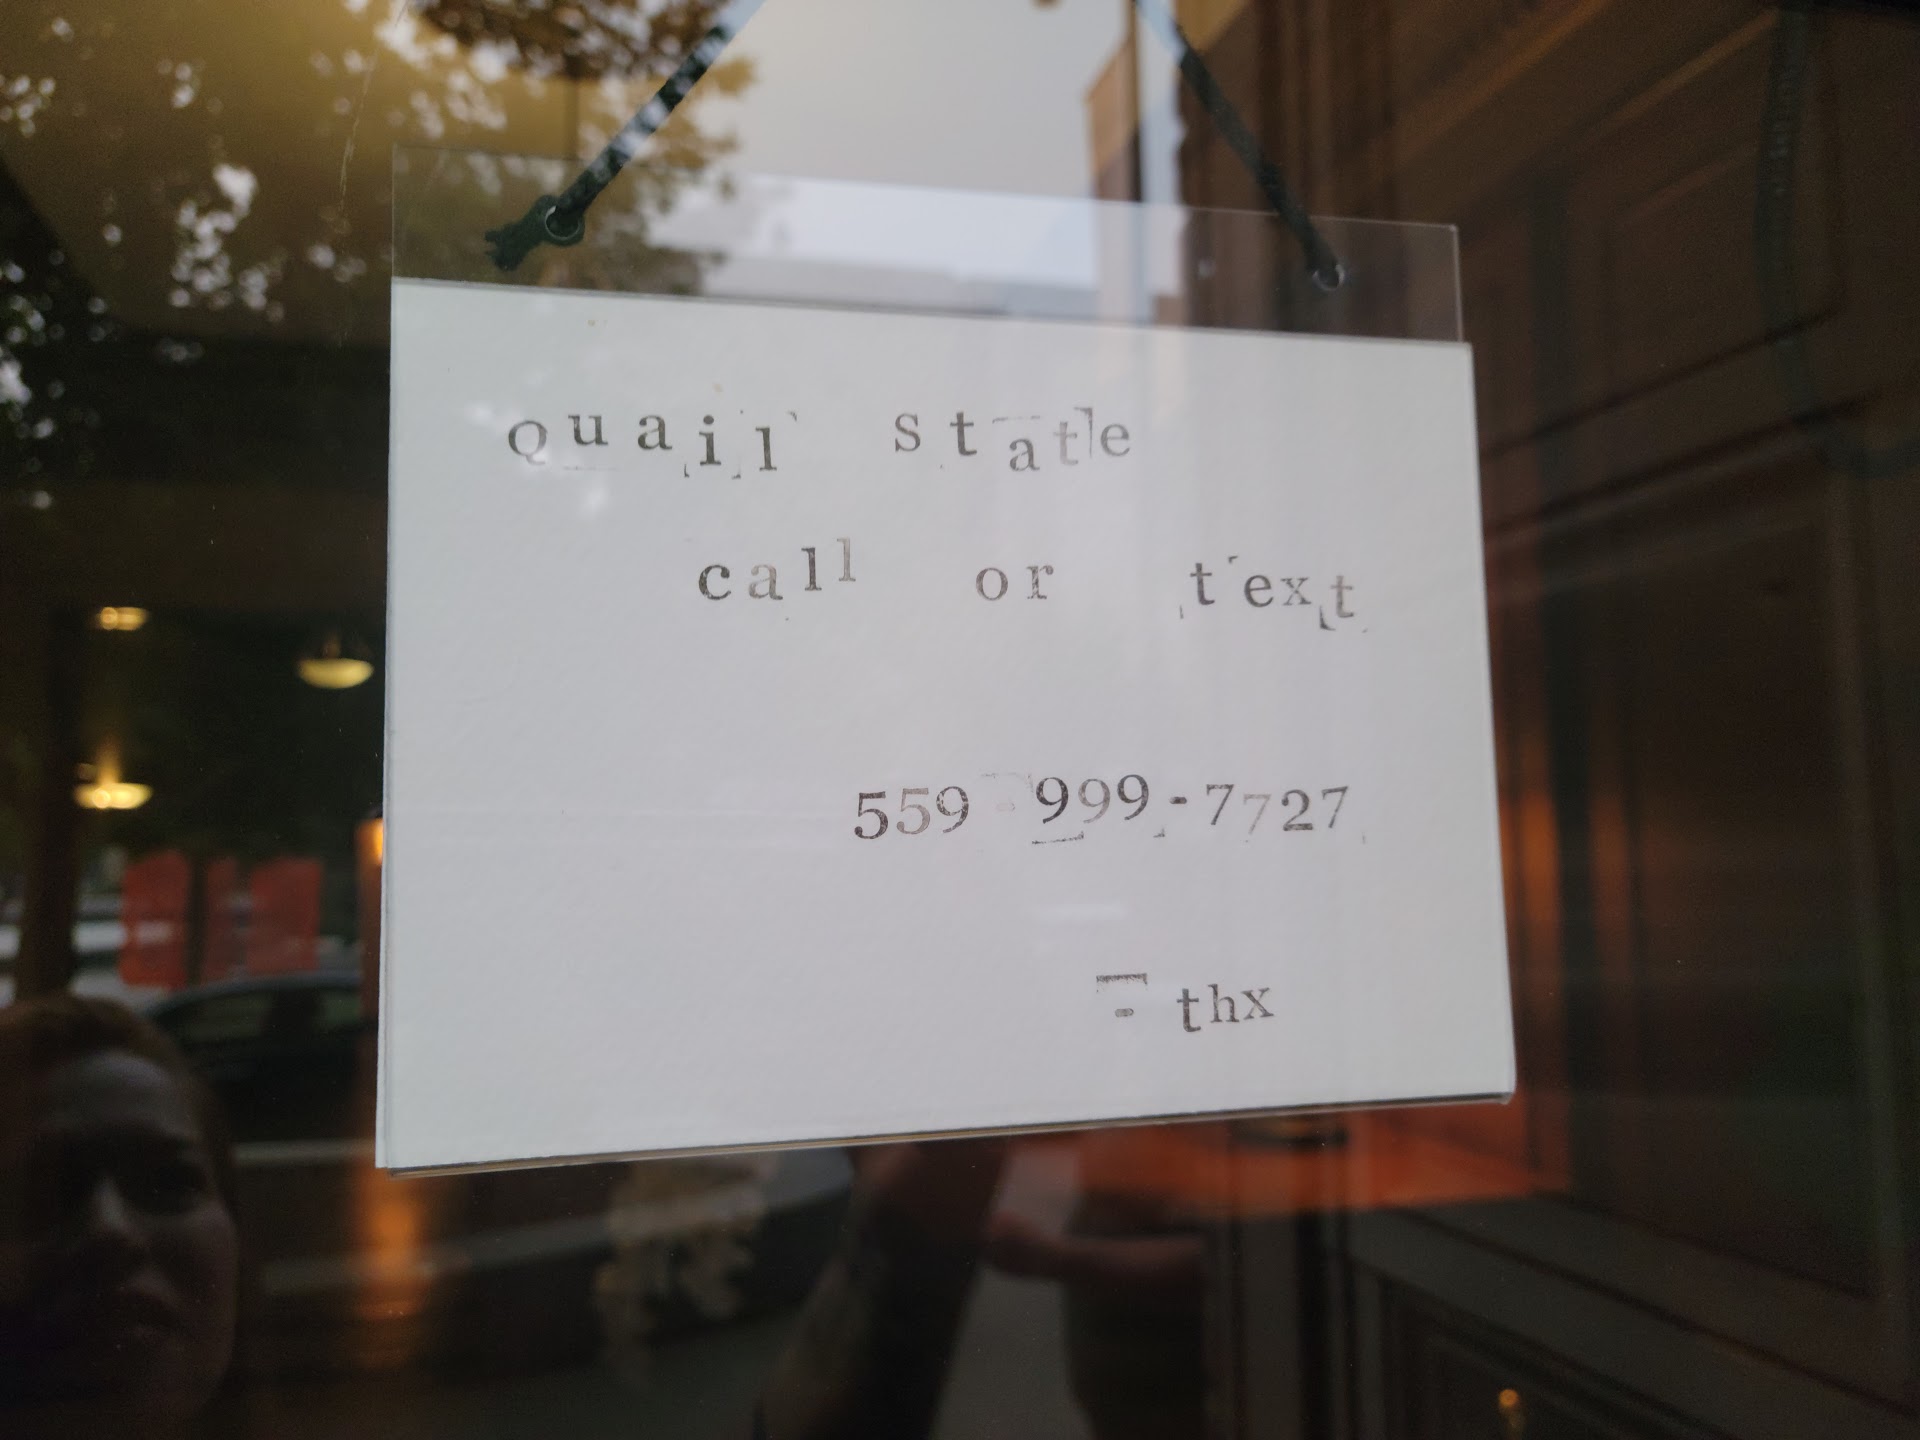 Quail state
call or text
559-999-7727
- thx